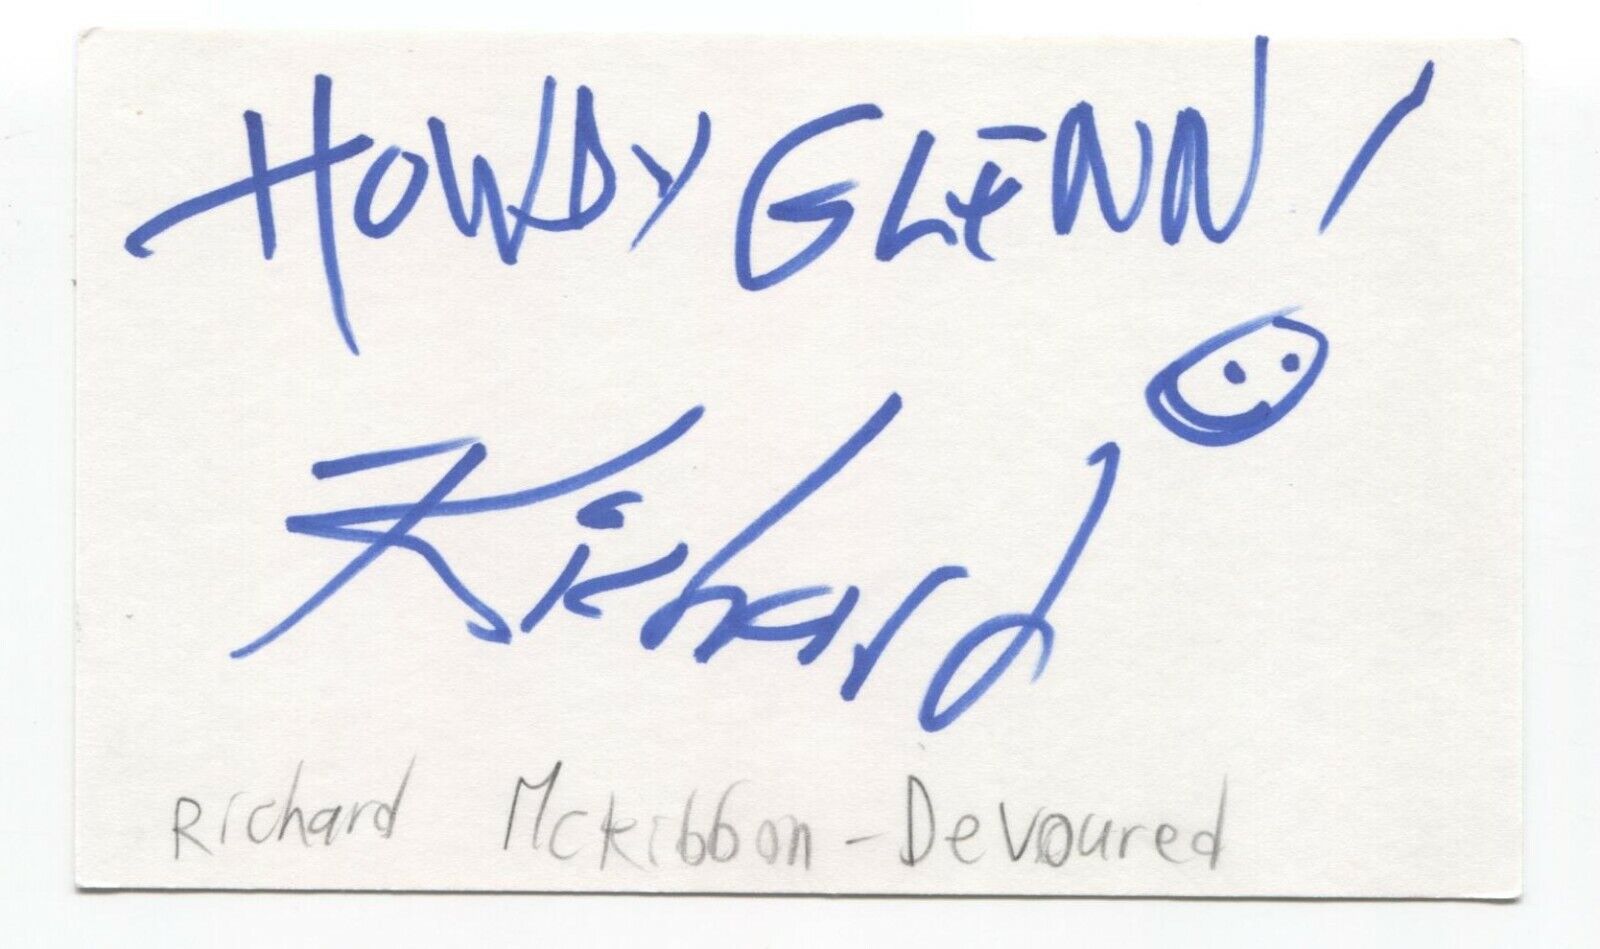 HOWDY GLENN!
Richard
Richard McKibbon - Devoured